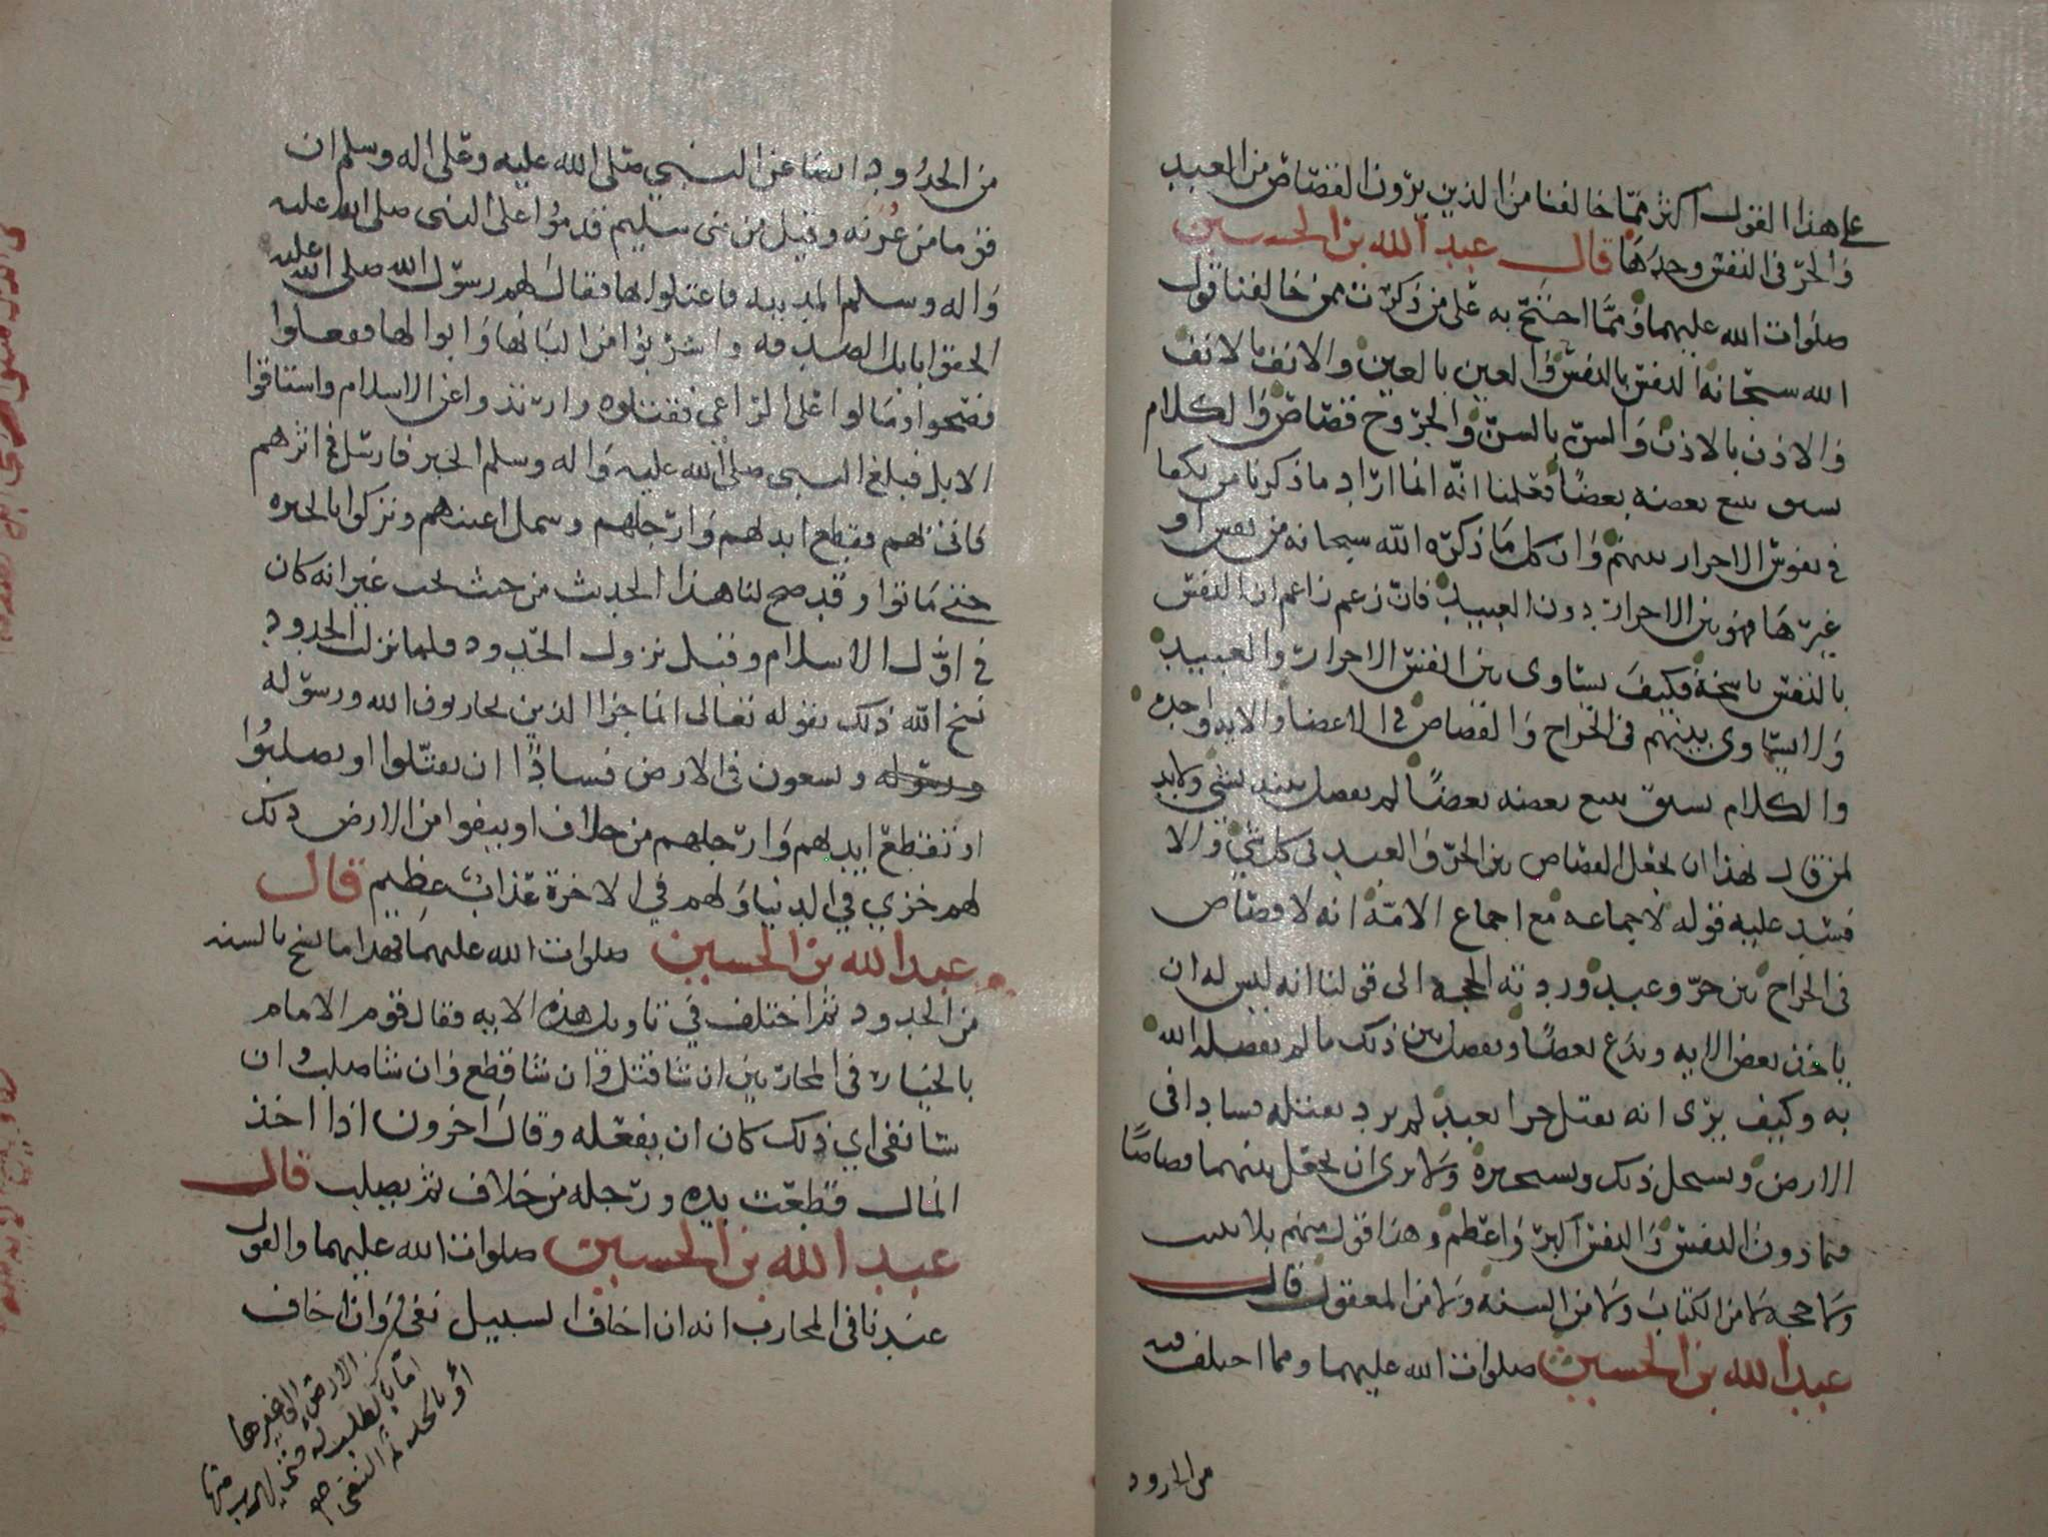 على هذا القول اكثر ممّا خالفنا من الذين يرون القصاص من العبيد
والحرّ في النفس وحدها قال عبد الله بن الحسين
صلوات الله عليهما ومما احتج به على من ذكرت ممن خالفنا قول
الله سبحانه النفس بالنفس والعين بالعين والانف بالانف
والاذن بالاذن والسن بالسن والجروح قصاص والكلام
نسق يتبع بعضه بعضًا فعلمنا انه انما اراد ما ذكرنا من
في نفوس الاحرار بينهم وان كل ما ذكره الله سبحانه من نفس او
غيرها فهو بين الاحرار دون العبيد فان زعم زاعم ان النفس
بالنفس ناسخة فكيف يساوى بين انفس الاحرار والعبيد
ولا يساوى بينهم في الجراح والقصاص في الاعضا والاية واحده
والكلام نسق يتبع بعضه بعضًا لم يفصل بينه بشي ولابد
لمن قال بهذا ان يجعل القصاص بين الحر والعبد في كل شي والا
فسد عليه قوله لاجماعه مع اجماع الامة انه لا قصاص
في الجراح بين حر وعبد وردته الحجه الى قولنا انه ليس له ان
ياخذ بعض الايه ويدع بعضًا ويفصل بين ذلك ما لم يفصله الله
به وكيف يرى انه يقتل حرا بعبد لم يرد بقتله فسادا في
الارض ويستحل ذلك ويستجيزه ولا يرى ان يجعل بينهما قصاصًا
فيما دون النفس والنفس اكبر واعظم وهذا قول منهم بلا
ولا حجه لا من الكتاب ولا من السنه ولا من المعقول قال
عبد الله بن الحسين صلوات الله عليهما ومما اختلف فيه
من الحدود
من الحدود ايضا عن النبي صلى الله عليه وعلى اله وسلم ان
قوما من عرنه وقيل من بني سليم قدموا على النبي صلى الله عليه
واله وسلم المدينه فاعتلوا بها فقال لهم رسول الله صلى الله عليه
الحقوا بابل الصدقه واشربوا من البانها وابوالها ففعلوا
فصحوا ومالوا على الراعي فقتلوه وارتدوا عن الاسلام واستاقوا
الابل فبلغ النبي صلى الله عليه واله وسلم الخبر فارسل في اثرهم
فاتى بهم فقطع ايديهم وارجلهم وسمل اعينهم وتركوا بالحره
حتى ماتوا وقد صح لنا هذا الحديث من حيث نحب غير انه كان
في اول الاسلام وقبل نزول الحدود فلما نزل الحدود
نسخ الله ذلك بقوله تعالى انما جزا الذين يحاربون الله ورسوله
ورسوله ويسعون في الارض فسادًا ان يقتلوا او يصلبوا
او تقطع ايديهم وارجلهم من خلاف او ينفوا من الارض ذلك
لهم خزي في الدنيا ولهم في الاخرة عذاب عظيم قال
عبد الله بن الحسين صلوات الله عليهما فهذا ما نسخ بالسنه
من الحدود ثم اختلف في تاويل هذه الايه فقال قوم الامام
بالخيار في المحاربين ان شا قتل وان شا قطع وان شا صلب وان
شا نفى اي ذلك كان ان يفعله وقال اخرون اذا اخذ
المال قطعت يده ورجله من خلاف ثم يصلب قال
عبد الله بن الحسين صلوات الله عليهما والقول
عندنا في المحارب انه ان اخاف السبيل نفي وان اخاف
من الارض الى غيرها
اما بالطلب له حتى يهرب منها
او بالحد ثم النفي صح